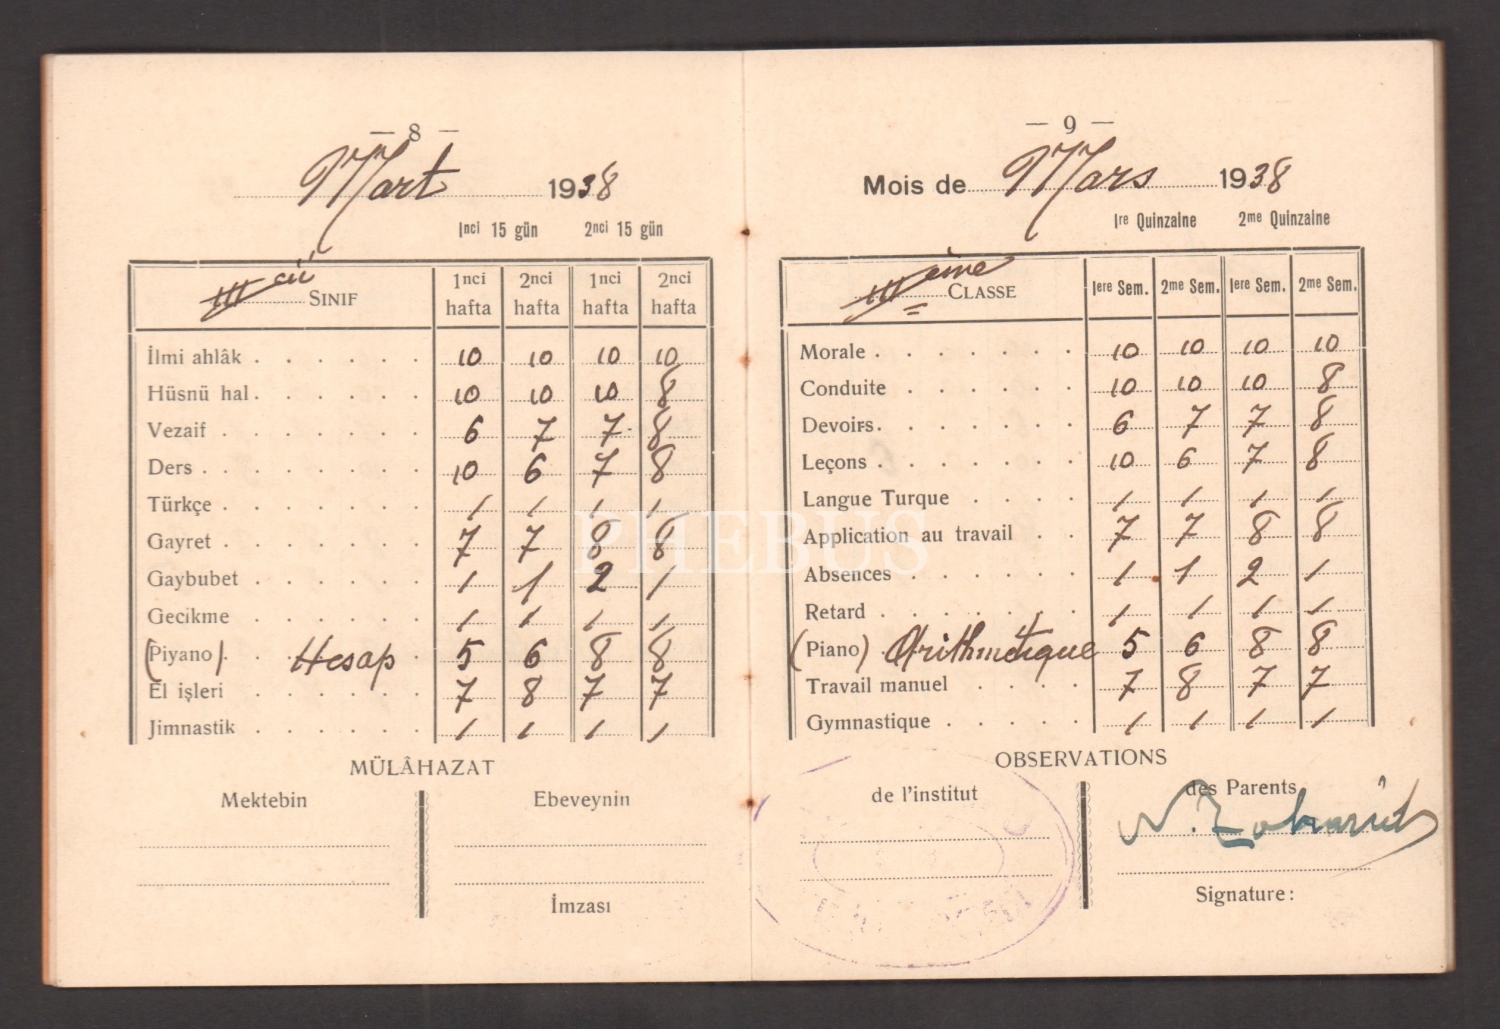 — 8 —
Mart 1938
1nci 15 gün 2nci 15 gün
III cü SINIF 1nci hafta 2nci hafta 1nci hafta 2nci hafta
İlmi ahlâk . . . . . . 10 10 10 10
Hüsnü hal . . . . . . 10 10 10 8
Vezaif . . . . . . . 6 7 7 8
Ders . . . . . . . 10 6 7 8
Türkçe . . . . . . . / / / /
Gayret . . . . . . . 7 7 8 8
Gaybubet . . . . . . / 1 2 /
Gecikme . . . . . . / / / /
(Piyano) . . Hesap 5 6 8 8
El işleri . . . . . . 7 8 7 7
Jimnastik . . . . . . / / / /
MÜLÂHAZAT
Mektebin Ebeveynin
İmzası
— 9 —
Mois de Mars 1938
1re Quinzaine 2me Quinzaine
III ème CLASSE 1ere Sem. 2me Sem. 1ere Sem. 2me Sem.
Morale . . . . . . . 10 10 10 10
Conduite . . . . . . 10 10 10 8
Devoirs . . . . . . 6 7 7 8
Leçons . . . . . . . 10 6 7 8
Langue Turque . . . . / / / /
Application au travail . . 7 7 8 8
Absences . . . . . . / 1 2 /
Retard . . . . . . . / / / /
(Piano) Arithmétique 5 6 8 8
Travail manuel . . . . 7 8 7 7
Gymnastique . . . . . / / / /
OBSERVATIONS
de l'institut des Parents
Signature:
PHEBUS